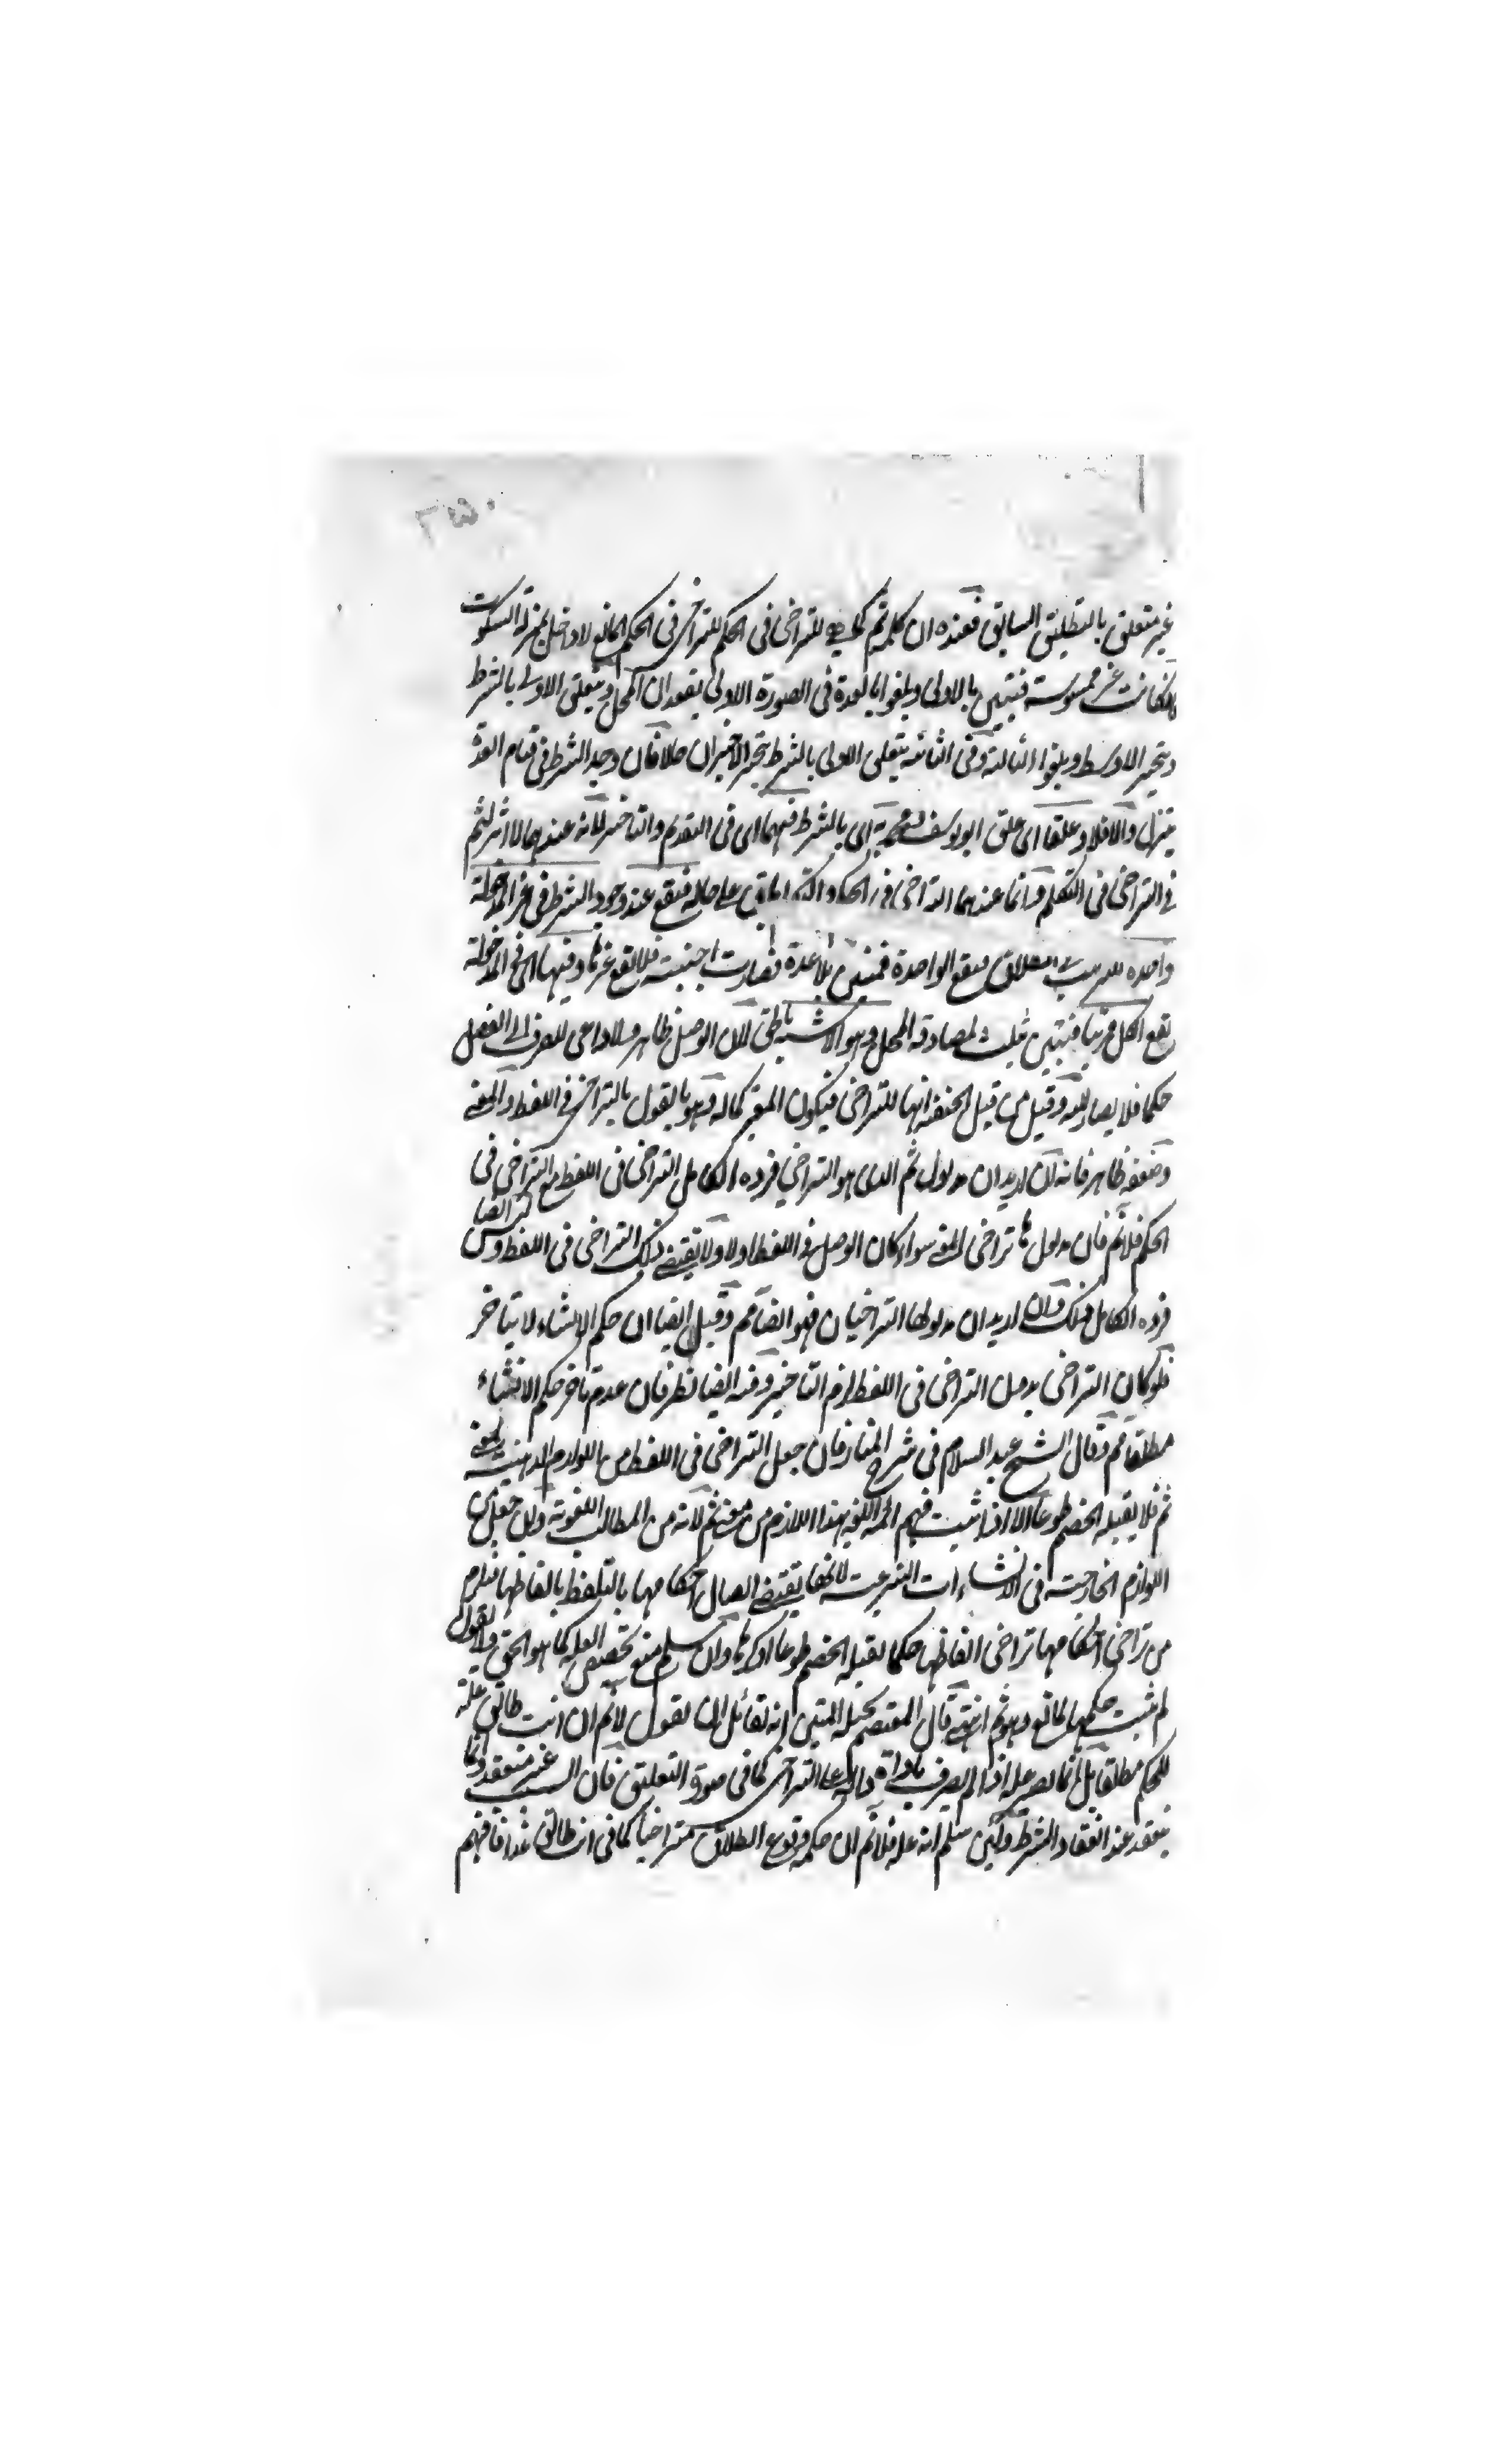 غير متعلق بالتطليق السابق فعنده ان كلمة ثم كما هي للتراخى فى الحكم للتراخى فى الحكم المانع لا داخل بمنزلة السكوت
كانت غير ممسوسة فتبين بالاولى ويلغو البعدة فى الصورة الاولى بفقدان المحل ويتعلق الاولى بالشرط
ويتخير الاوسط ويلغو الثالثة وفى الثانية يتعلق الاولى بالشرط يتخير الاخيران حالا فان وجد الشرط فى قيام العدة
يتنزل والا فلا وعلقا اى علق ابو يوسف ومحمد اى بالشرط فيهما اى فى التقديم والتاخير لانه عندهما لا اثر لثم
فى التراخى فى التكلم وانما عندهما التراخى فى الحكم على حاله فيقع عند وجود الشرط فى غير المدخولة
واحدة الطلاق فيقع الواحدة فتبين بلا عدة فصارت اجنبية فلا يقع غيرها وفيها اى فى المدخولة
يقع الكل مرتبا فتبين بثلث لمصادفة المحل وهو الاشبه بالحق لان الوصل ظاهر ولا داعى للصرف الى الفصل
حكما فلا يصار اليه وقيل من قبل الحنفية انها للتراخى فيكون المعتبر كماله وهو بالقول بالتراخى فى اللفظ والمعنى
وضعفه ظاهر فانه ان اريد ان مدلول ثم الذى هو التراخى فرده الكامل التراخى فى اللفظ مع التراخى فى
الحكم فلا نم فان مدلولها تراخى المعنى سواء كان الوصل فى اللفظ اولا ولا يقتضى ذلك التراخى فى اللفظ وليس
فرده الكامل ذلك وان اريد ان مدلولها التراخيان فهو ايضا مم وقيل ايضا ان حكم الانشاء لا يتاخر
فلو كان التراخى بدون التراخى فى اللفظ لزم التاخير وفيه ايضا نظر فان عدم تاخر حكم الانشاء
مطلقا مم وقال الشيخ عبد السلام فى شرح المنار فان جعل التراخى فى اللفظ من اللوازم الذهنية لمعنى
ثم فلا يقبله الخصم طوعا الا اذا ثبت فهم ائمة اللغة بهذا اللازم من معنى ثم لانه من المطالب اللغوية وان جعل من
اللوازم الخارجية فى الانشاءات الشرعية لانها يقتضى اتصال احكامها بالتلفظ بالفاظها فيلزم
من تراخى احكامها تراخى الفاظها حكما يقبله الخصم طوعا او كرها وان سلم منع تخصيص العلة كما هو الحق والا يقول
لم يثبت حكمها لمانع وهو ثم انتهى قال المعتصم بحبله المتين انه لقائل ان يقول لا نم ان انت طالق علة
للحكم مطلقا بل انما يصير علة اذا لم يصرف باداة دالة على التراخى كما فى صورة التعليق فان السبب غير منعقد وانما
ينعقد عند انعقاد الشرط ولئن سلم انه علة فلا نم ان حكمه وقوع الطلاق متراخيا كما فى انت طالق غدا فافهم